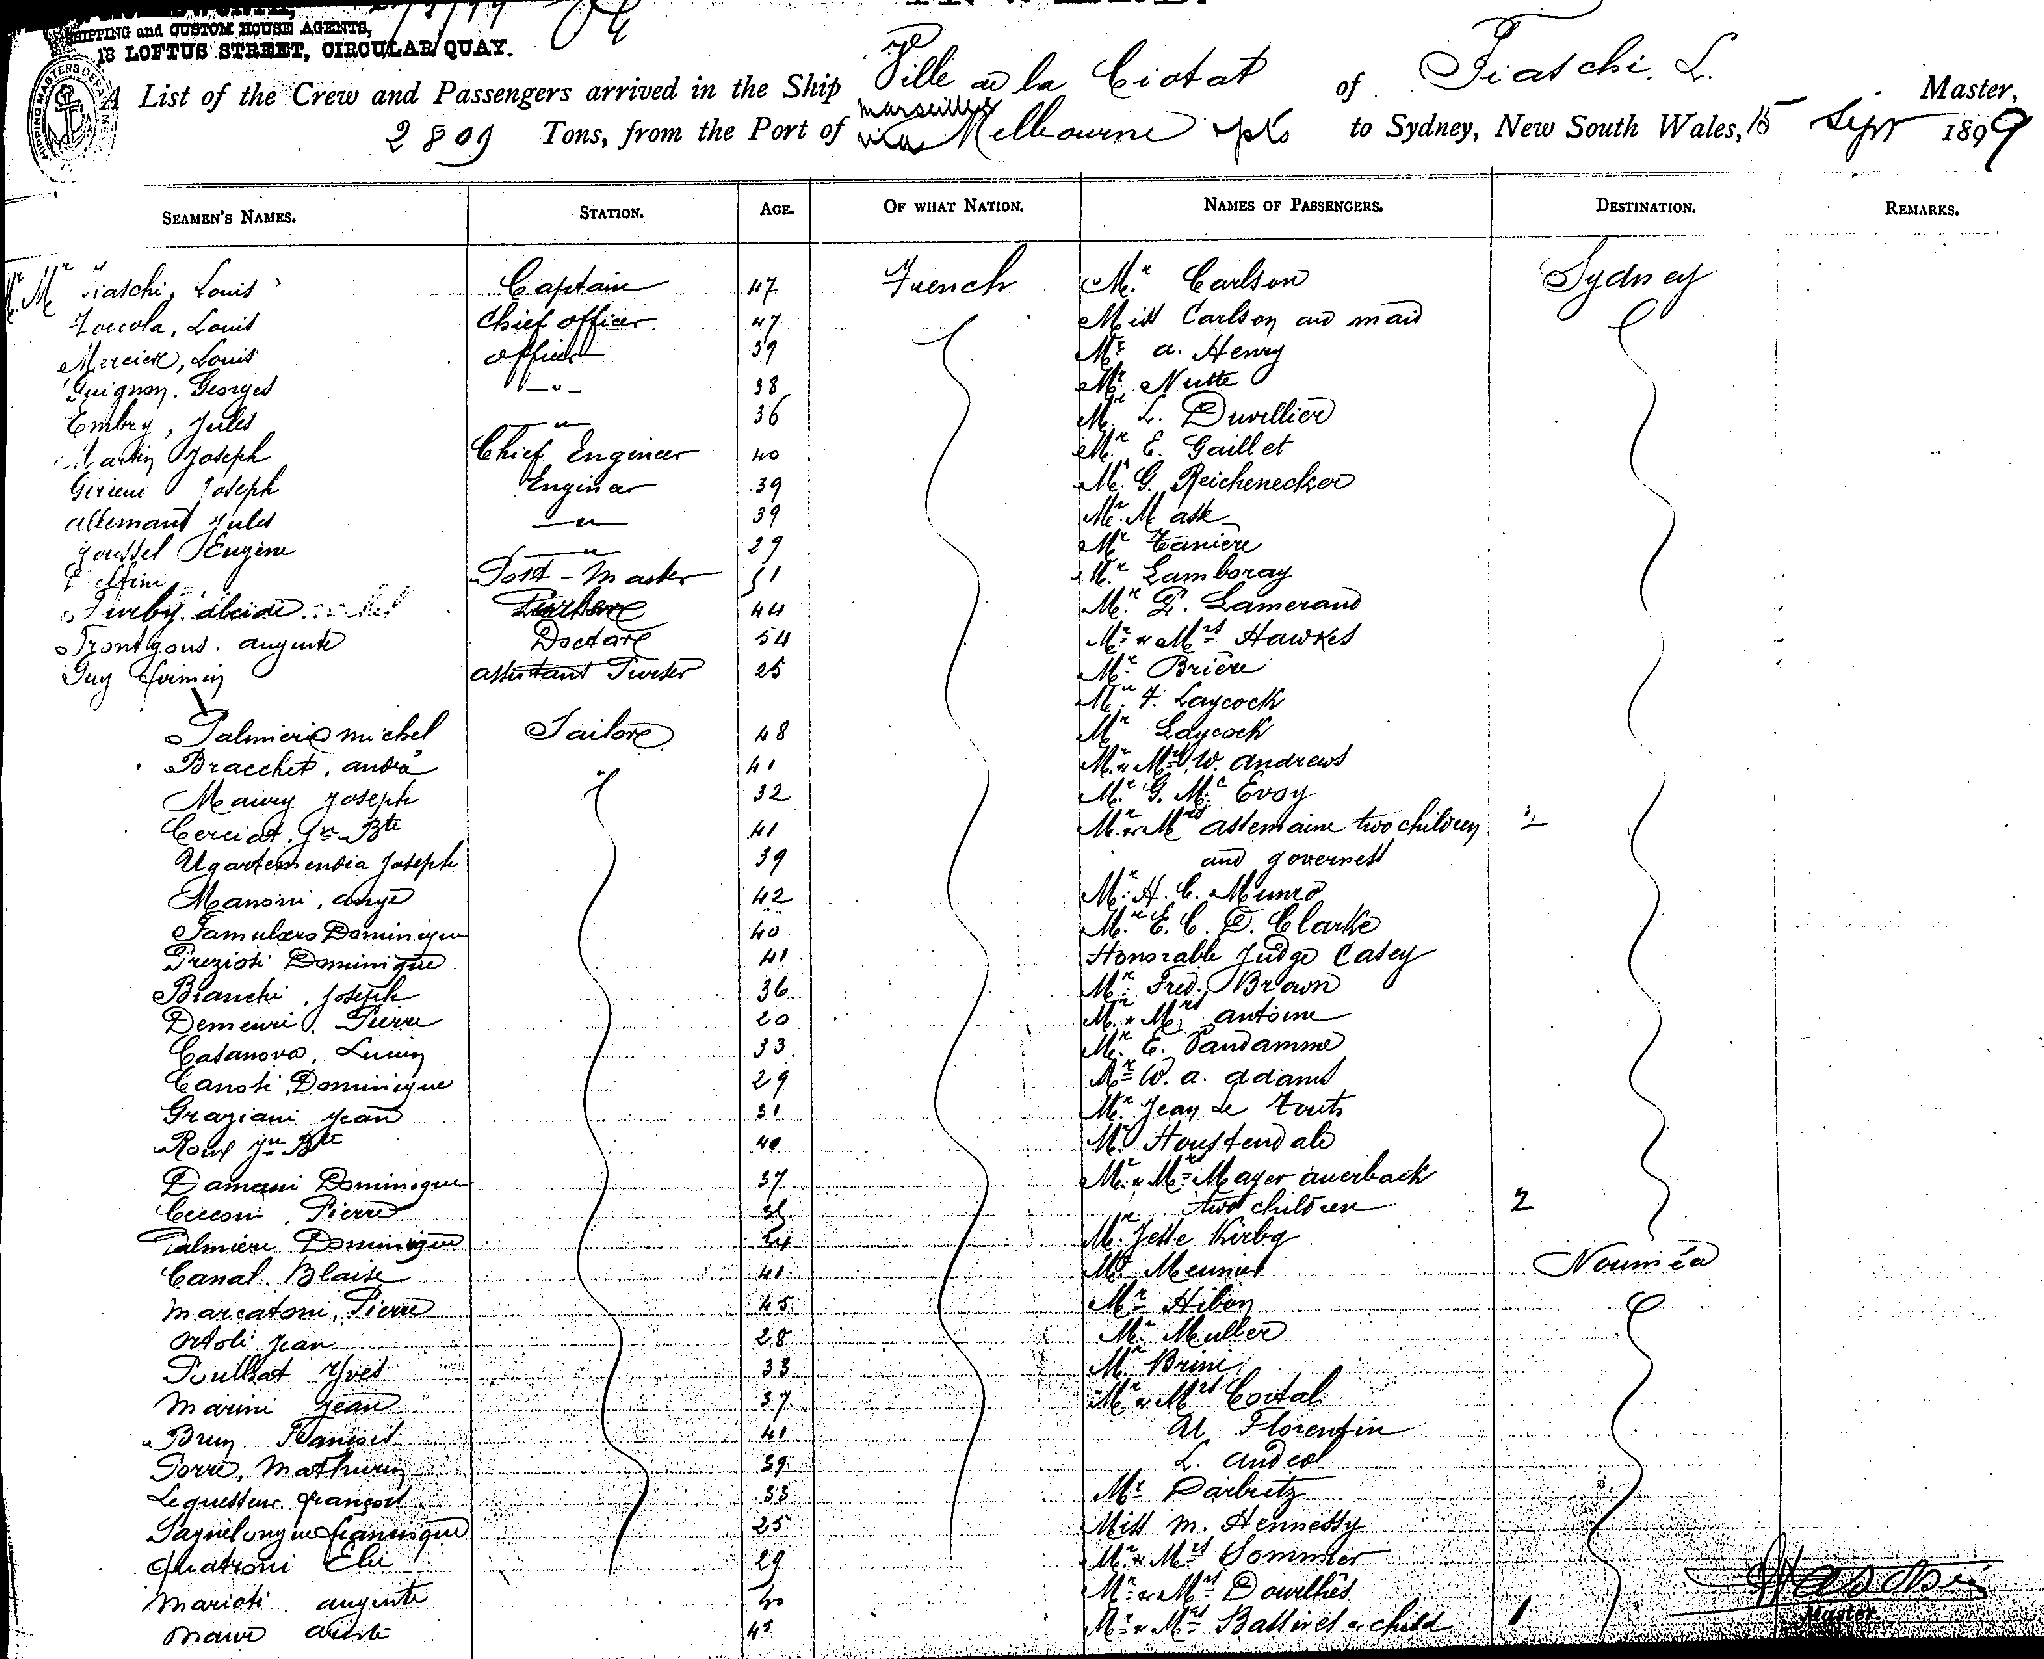 SHIPPING and CUSTOM HOUSE AGENTS,
13 LOFTUS STREET, CIRCULAR QUAY.
A List of the Crew and Passengers arrived in the Ship Ville de la Ciotat of Fiaschi. L. Master,
Marseilles
2809 Tons, from the Port of via Melbourne to Sydney, New South Wales, 15 Sept 1899
SEAMEN'S NAMES. STATION. AGE. OF WHAT NATION. NAMES OF PASSENGERS. DESTINATION. REMARKS.
Fiaschi, Louis Captain 47 French Mr. Carlson Sydney
Louis Chief officer 47 Miss Carlson and maid
Mercier, Louis officer 39 Mr. A. Henry
Guignon. Georges -"- 38 Mr. Nutte
Embry, Jules " 36 Mr. L. Duvillier
Martin Joseph Chief Engineer 40 Mr. E. Gaillet
Joseph Engineer 39 Mr. G. Reichenecker
allemant Jules -"- 39 Mr. Mask
Joussel Eugène " 29 Mr. Tanière
Post-Master 51 Mr. Lamboray
44 Mr. Lamerand
auguste Doctore 54 Mr. & Mrs Hawkes
Guy Firmin assistant Purser 25 Mr. Brière
Mr. F. Laycock
Palmieri michel Sailore 48 Mr. Laycock
Bracchet, andré 41 Mr. & Mrs. W. andrews
Maury Joseph 32 Mr. G. Mc Evoy
Jn Bte 41 Mr. & Mrs two children 2
Ugartemendia Joseph 39 and governess
Manoni, ange 42 Mr. H. C. Munro
Dominique 40 Mr. E. C. D. Clarke
Preziosi Dominique 41 Honorable Judge Casey
Bianchi, Joseph 36 Mr. Fred. Brown
Pierre 20 Mr. & Mrs antoine
Casanova, Lucien 33 Mr. E. Vandamme
Canoti Dominique 29 Mr. W. a. adams
Graziani Jean 31 Mr. Jean Le
Roux Jn Bte 40 Mr. Houstendale
Damiani Dominique 37 Mr. & Mrs Mayer auerback
Cecconi, Pierre two children 2
Palmiere Dominique Mr. Jesse Kirby
Canal Blaise 41 Mr. Meunier Nouméa
Marcatoni, Pierre 45 Mr. Hibon
Ortoli Jean 28 Mr. Muller
Poulhat Yves 33 Mr. Brine
Marini Jean 37 Mr. & Mrs
Brun François 41 Al Florentin
Porré, Mathurin 39 L. andeol
Lequesteur François 33 Mr. Darbritz
25 Miss M. Hennessy
Quatroni Elie 29 Mr. & Mrs Sommier
Marioti auguste Mr. & Mrs Dourthes
45 Mr. & Mrs Bastinet & child 1
Master